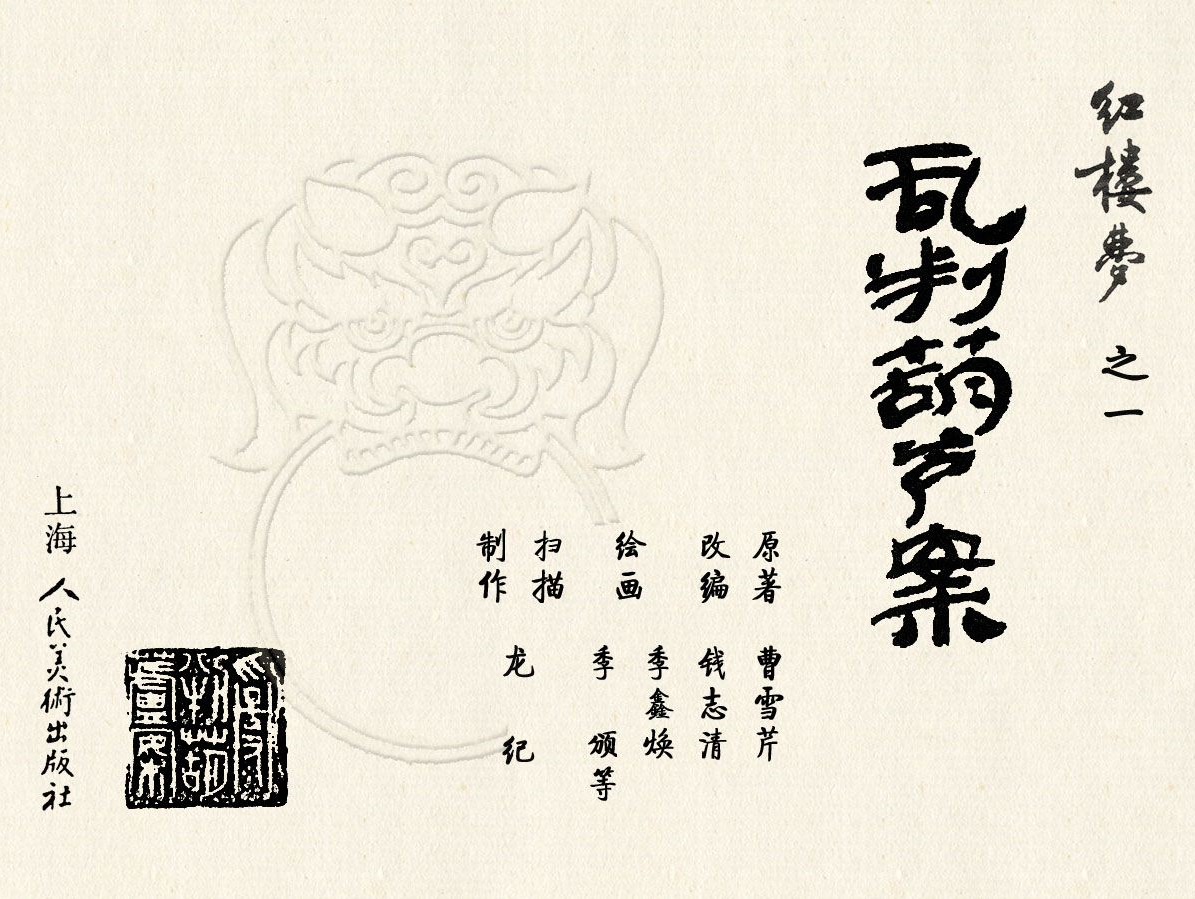 红楼梦 之一
乱判葫芦案
原著 曹雪芹
改编 钱志清
绘画 季鑫焕
季颁等
扫描 龙纪
制作
上海人民美術出版社